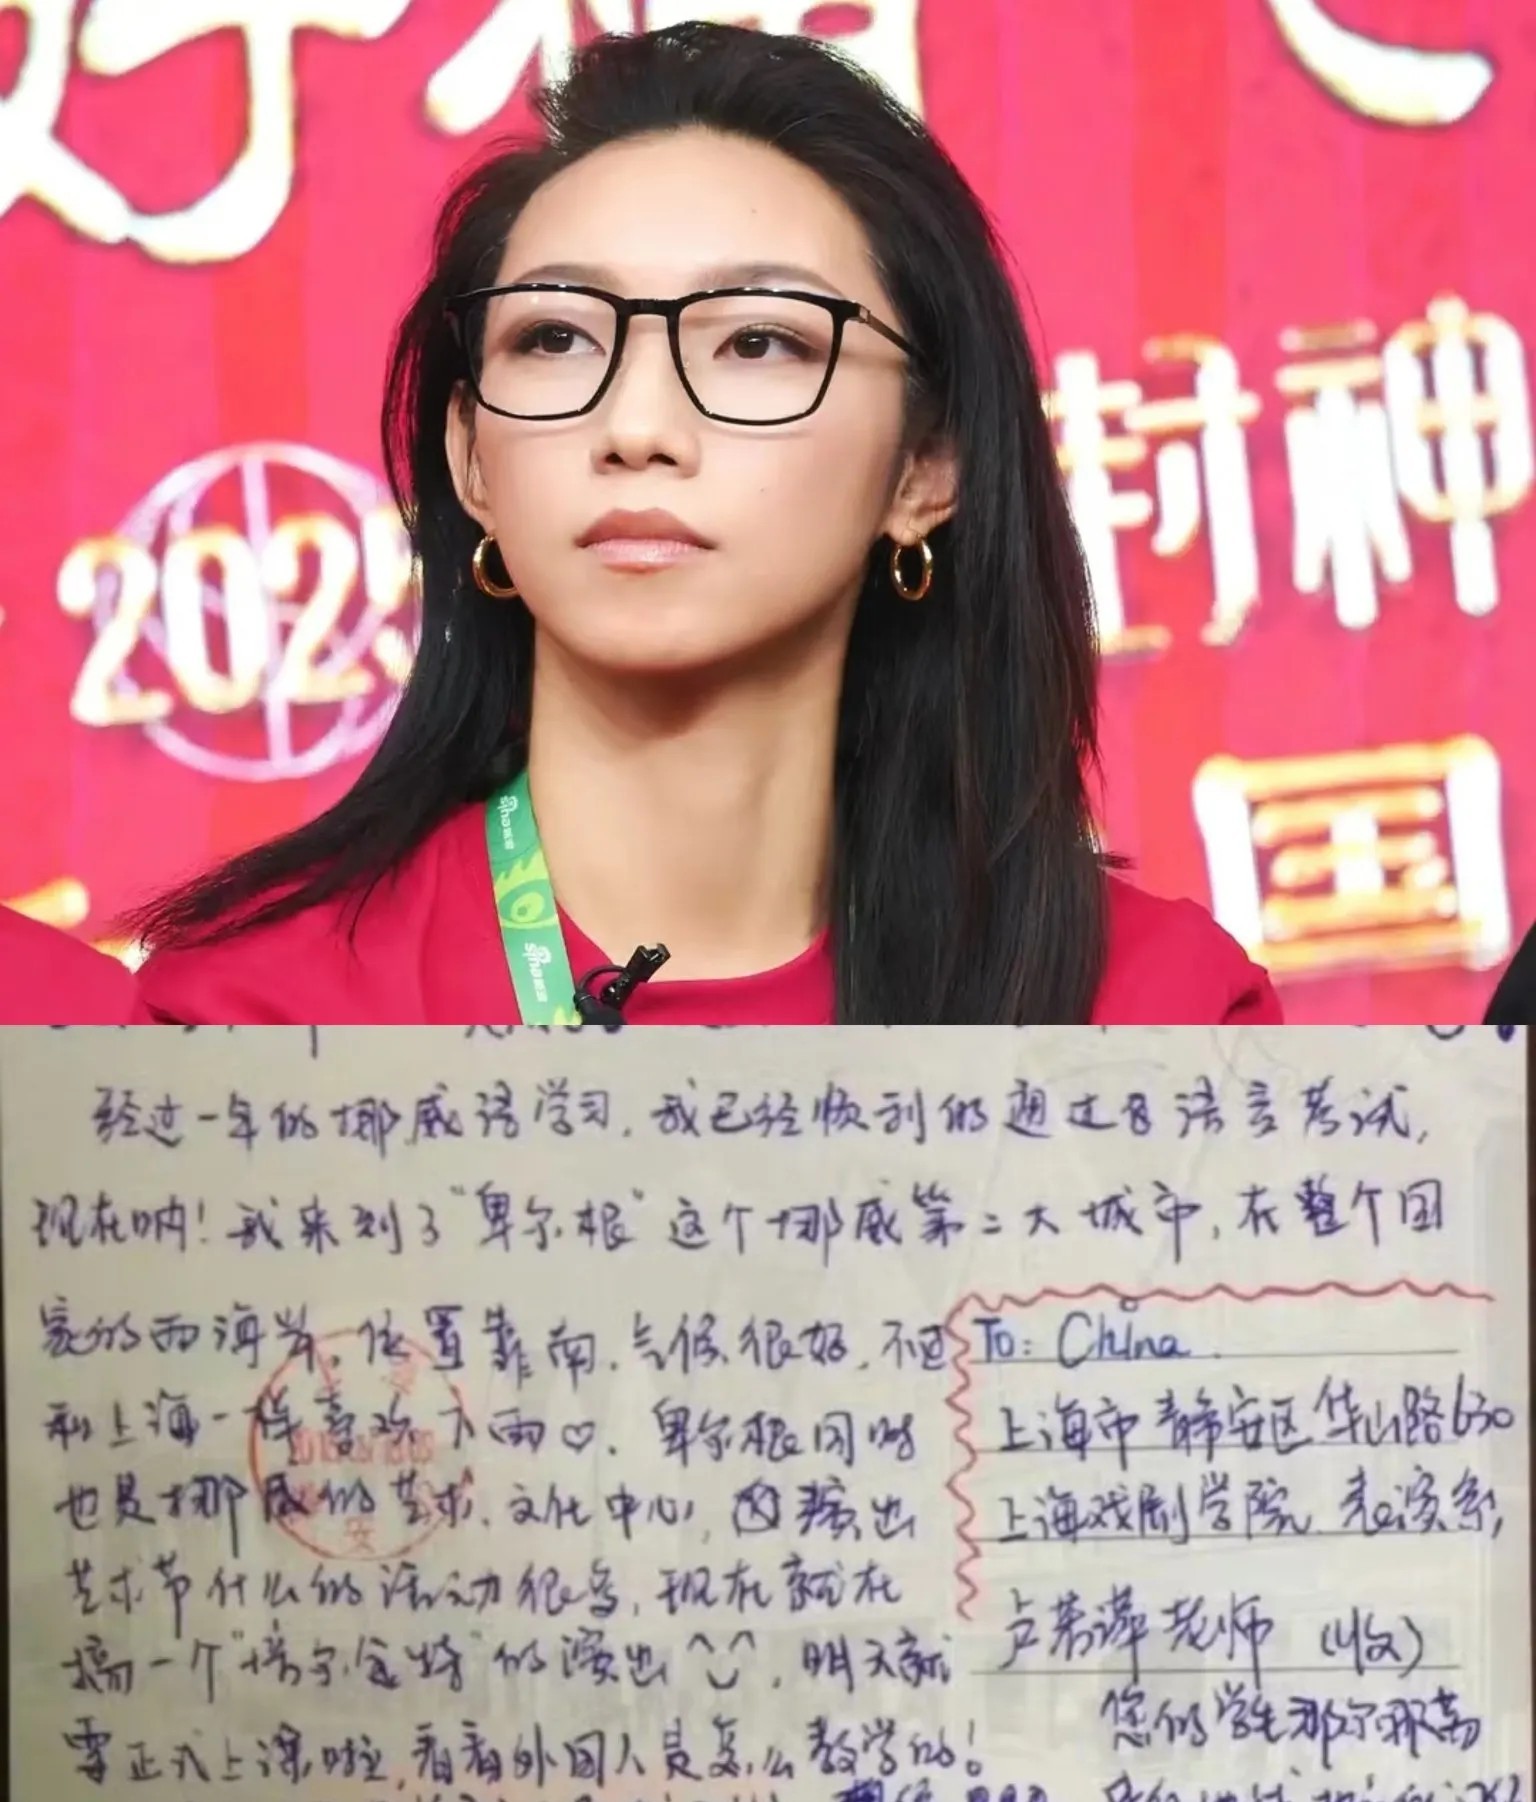 好福
2025
封神
国
sina新浪
sina新浪
经过一年的挪威语学习，我已经顺利的通过B语言考试，
现在呐！我来到了“卑尔根”这个挪威第二大城市，在整个国
家的西海岸，位置靠南，气候很好，不过
和上海一样喜欢下雨♡．卑尔根同时
也是挪威的艺术、文化中心，演出
艺术节什么的活动很多，现在就在
搞一个“培尔金特”的演出^_^，明天就
要正式上课啦，看看外国人是怎么教学的！
To: China
上海市静安区华山路630
上海戏剧学院 表演系，
卢若萍老师（收）
您的学生那尔那茜